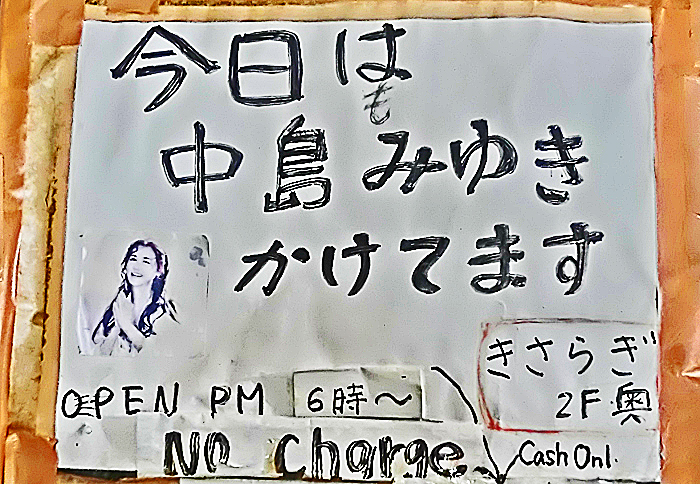 今日は
も
中島みゆき
かけてます
きさらぎ
2F奥
OPEN PM 6時〜
No Charge
Cash Onl